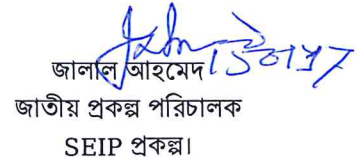 জালাল আহমেদ
জাতীয় প্রকল্প পরিচালক
SEIP প্রকল্প।